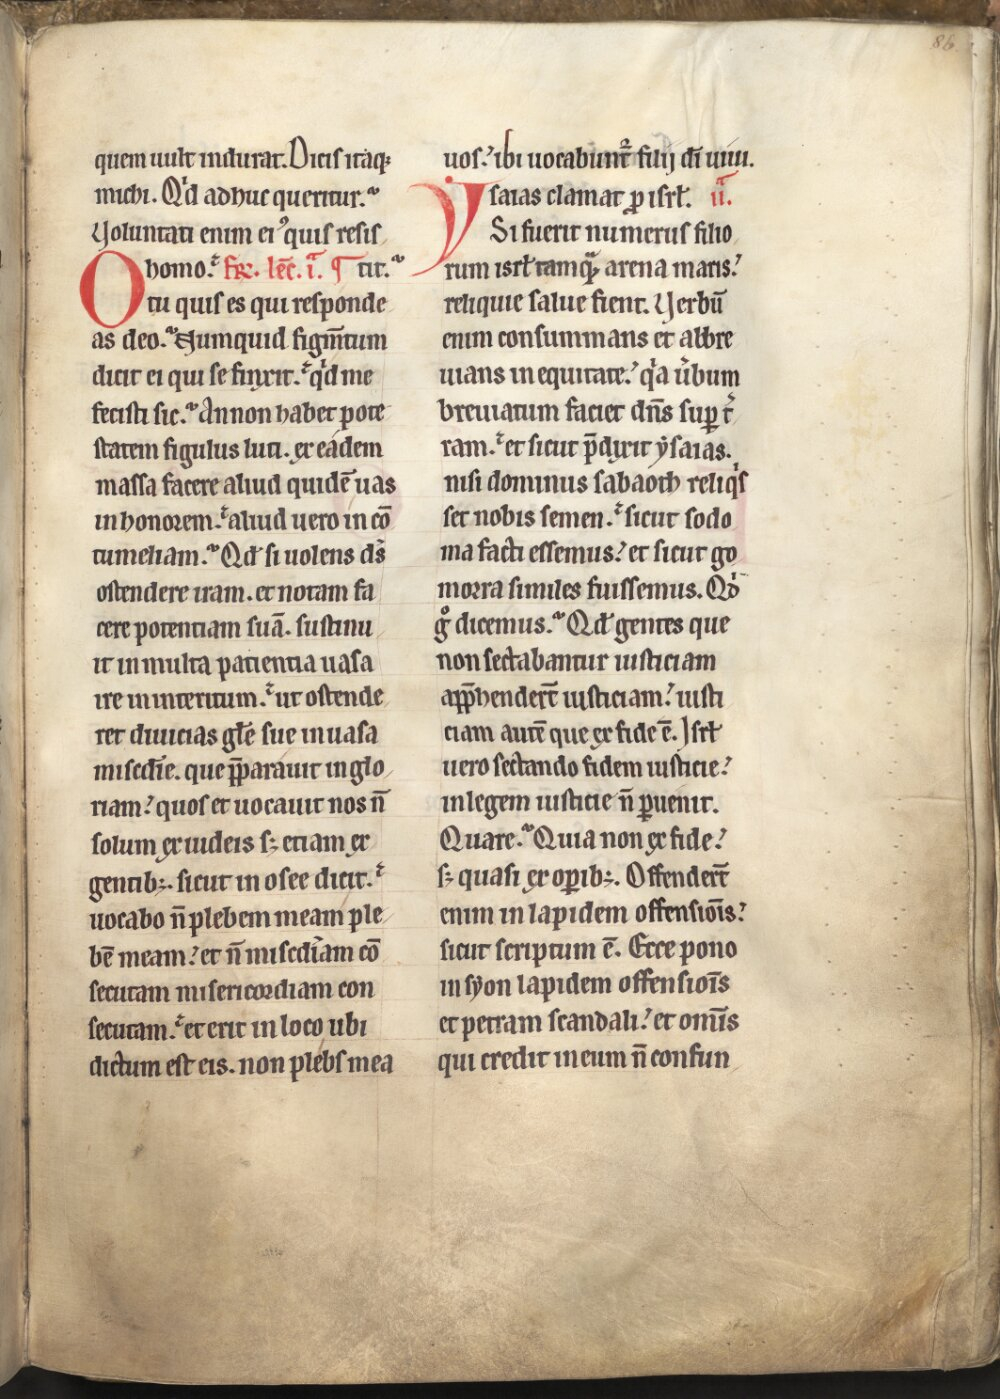 86.
quem uult indurat. Dicis itaq;
michi. Qd adhuc queritur.
Voluntati enim ei᾽ quis resis
O homo. fr̄. lec̄. i. ¶ tit.
tu quis es qui responde
as deo. Numquid figm̄tum
dicit ei qui se finxit. qd me
fecisti sic. An non habet pote
statem figulus luti. ex eadem
massa facere aliud quidē uas
in honorem. aliud uero in cō
tumeliam. Qd si uolens ds̄
ostendere iram. et notam fa
cere potentiam suā. sustinu
it in multa patientia uasa
ire in interitum. ut ostende
ret diuicias glē sue in uasa
miscd̄ie. que p̄parauit in glo
riam? quos et uocauit nos n̄
solum ex iudeis s; etiam ex
gentib;. sicut in osee dicit.
uocabo n̄ plebem meam ple
bē meam? et n̄ miscd̄iam cō
secutam misericordiam con
secutam. et erit in loco ubi
dictum est eis. non plebs mea
uos? ibi uocabunt᾽ filij dī uiui.
Ysaias clamat p isrł. ii.
Si fuerit numerus filio
rum isrł tamq̄ arena maris?
reliquie salue fient. Verbū
enim consummans et abbre
uians in equitate? qa ūbum
breuiatum faciet dn̄s sup t̄
ram. et sicut p̄dixit ysaias.
nisi dominus sabaoth reliqs
set nobis semen. sicut sodo
ma facti essemus? et sicut go
morra similes fuissemus. Qd
g° dicemus. Qd gentes que
non sectabantur iusticiam
app̄henderēt iusticiam? iusti
ciam autē que ex fide ē. Isrł
uero sectando fidem iusticie?
in legem iusticie n̄ puenit.
Quare. Quia non ex fide?
s; quasi ex opib;. Offenderēt
enim in lapidem offensiōis?
sicut scriptum ē. Ecce pono
in syon lapidem offensioīs
et petram scandali? et omīs
qui credit in eum n̄ confun